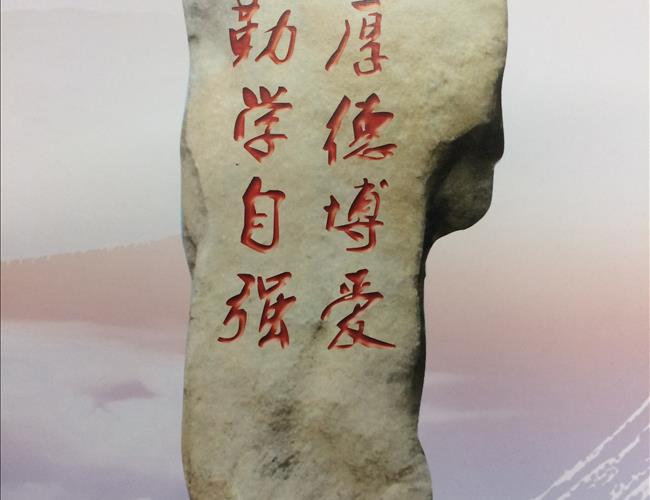 厚德博爱
勤学自强